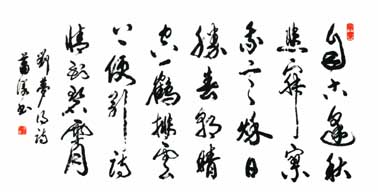 自古逢秋
悲寂寥
我言秋日
勝春朝晴
空一鶴排雲
上便引詩
情到碧霄
劉夢得詩